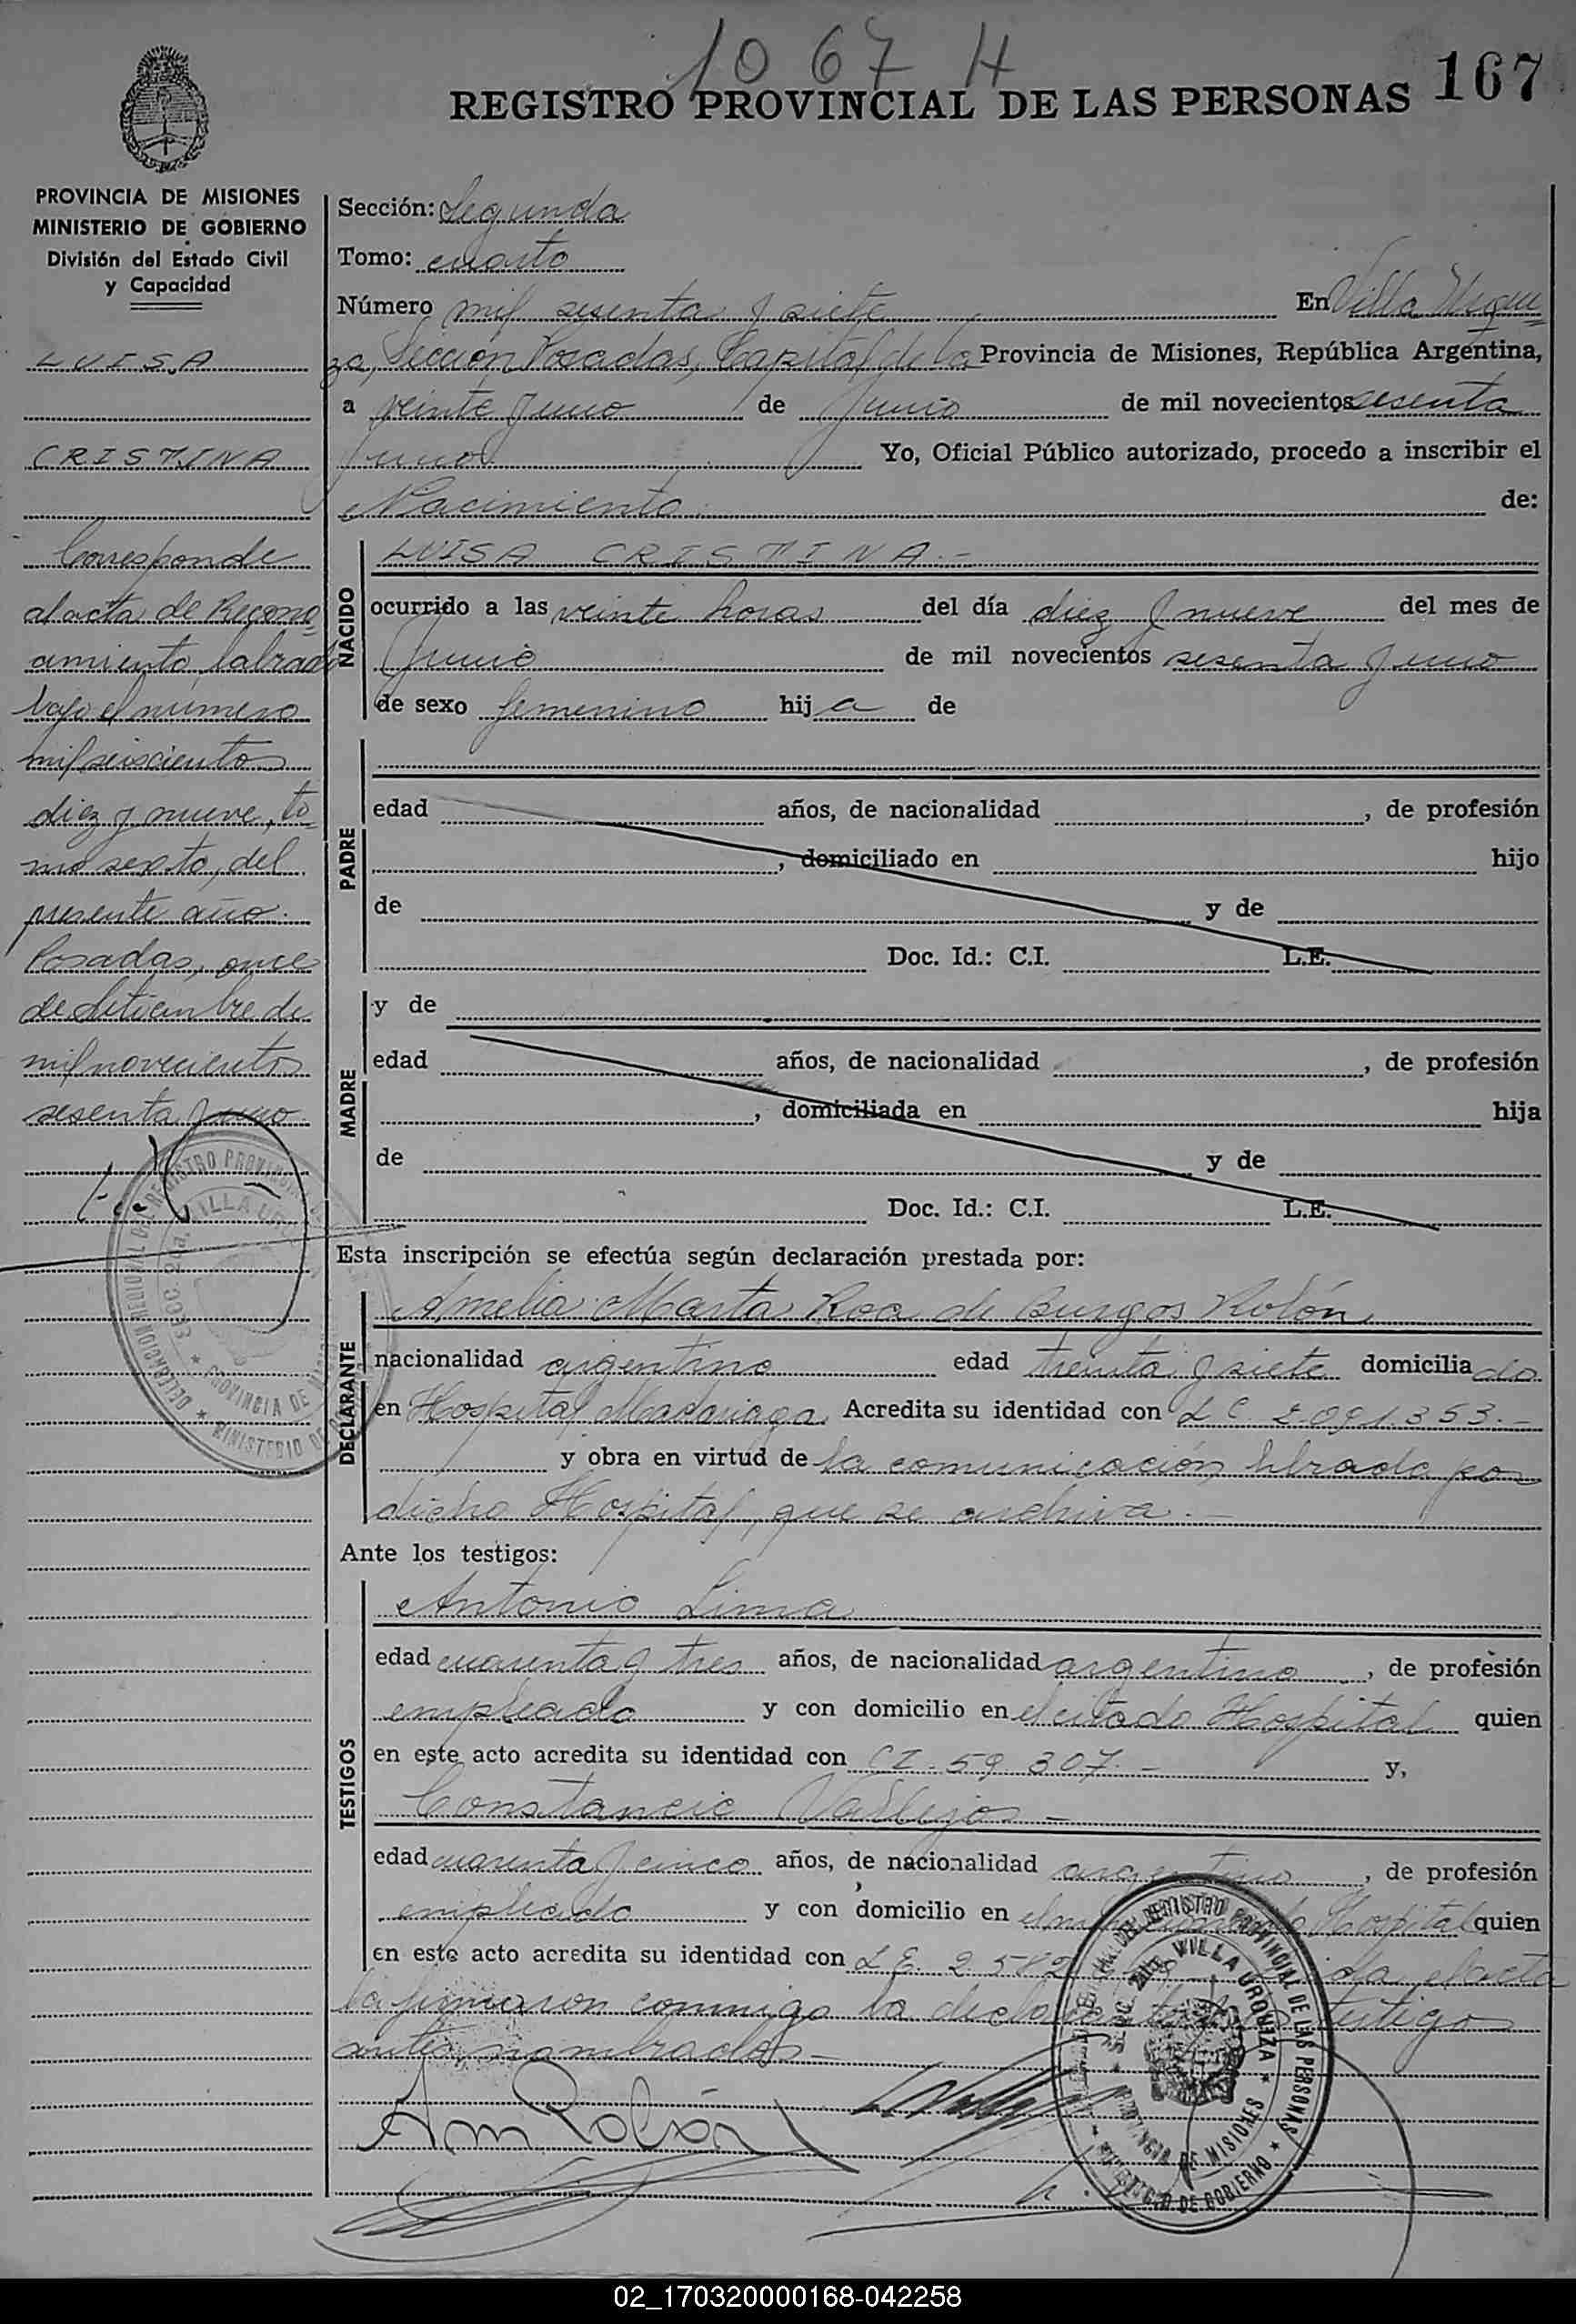 1067 H
REGISTRO PROVINCIAL DE LAS PERSONAS 167
PROVINCIA DE MISIONES
MINISTERIO DE GOBIERNO
División del Estado Civil
y Capacidad
LUISA
CRISTINA
Corresponde
al acta de Recono-
cimiento, labrada
bajo el número
mil seisciento
diez y nueve, to-
mo sexto, del
presente año.
Posadas, once
de Setiembre de
mil novecientos
sesenta y uno.
Sección: Segunda
Tomo: cuarto
Número mil sesenta y siete En Villa Urqui-
za, Sección Posadas, Capital de la Provincia de Misiones, República Argentina,
a veinte y uno de Junio de mil novecientos sesenta
y uno. Yo, Oficial Público autorizado, procedo a inscribir el
Nacimiento de:
NACIDO
LUISA CRISTINA.-
ocurrido a las veinte horas del día diez y nueve del mes de
Junio de mil novecientos sesenta y uno
de sexo femenino hija de
PADRE
edad años, de nacionalidad , de profesión
, domiciliado en hijo
de y de
Doc. Id.: C.I. L.E.
MADRE
y de
edad años, de nacionalidad , de profesión
, domiciliada en hija
de y de
Doc. Id.: C.I. L.E.
Esta inscripción se efectúa según declaración prestada por:
DECLARANTE
Amelia Marta Roa de Burgos Rolón
nacionalidad argentina edad treinta y siete domiciliado
en Hospital Madariaga. Acredita su identidad con L C 2.091.353.-
y obra en virtud de la comunicación librada por
dicho Hospital, que se archiva.-
Ante los testigos:
TESTIGOS
Antonio Lima
edad cuarenta y tres años, de nacionalidad argentino, de profesión
empleado y con domicilio en el citado Hospital quien
en este acto acredita su identidad con CI. 59.307.- y,
Constancio Vallejos -
edad cuarenta y cinco años, de nacionalidad argentino, de profesión
empleado y con domicilio en el Hospital quien
en este acto acredita su identidad con L E. 2.582 el acta
la firmaron conmigo la testigo
antes nombrados -
Am Rolón
DELEGACION REGIONAL DEL REGISTRO PROVINCIAL DE LAS PERSONAS
SECC. 2da. VILLA URQUIZA
PROVINCIA DE MISIONES
MINISTERIO DE GOBIERNO
REGISTRO PROVINCIAL DE LAS PERSONAS
VILLA URQUIZA
PROVINCIA DE MISIONES
MINISTERIO DE GOBIERNO
02_170320000168-042258